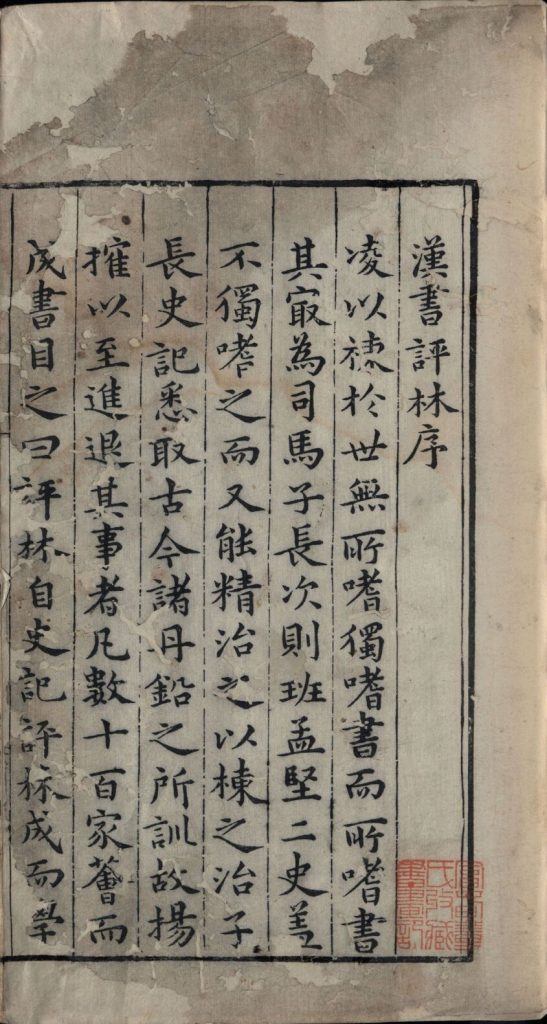 漢書評林序
凌以棟於世無所嗜獨嗜書而所嗜書
其㝡為司馬子長次則班孟堅二史盖
不獨嗜之而又能精治之以棟之治子
長史記悉取古今諸丹鉛之所訓故揚
搉以至進退其事者凡數十百家薈而
成書目之曰評林自史記評林成而學